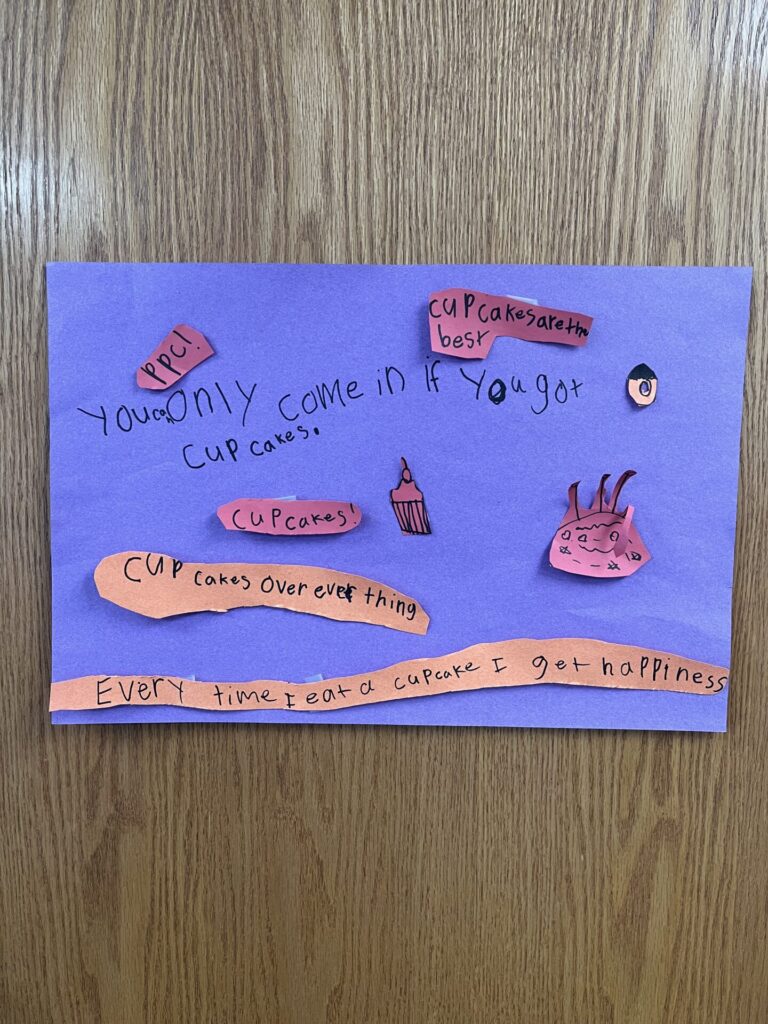 cupcakes are the
best
PPC!
You can Only come in if You got
cupcakes.
cupcakes!
CUP cakes over ever thing
Every time I eat a cupcake I get happiness